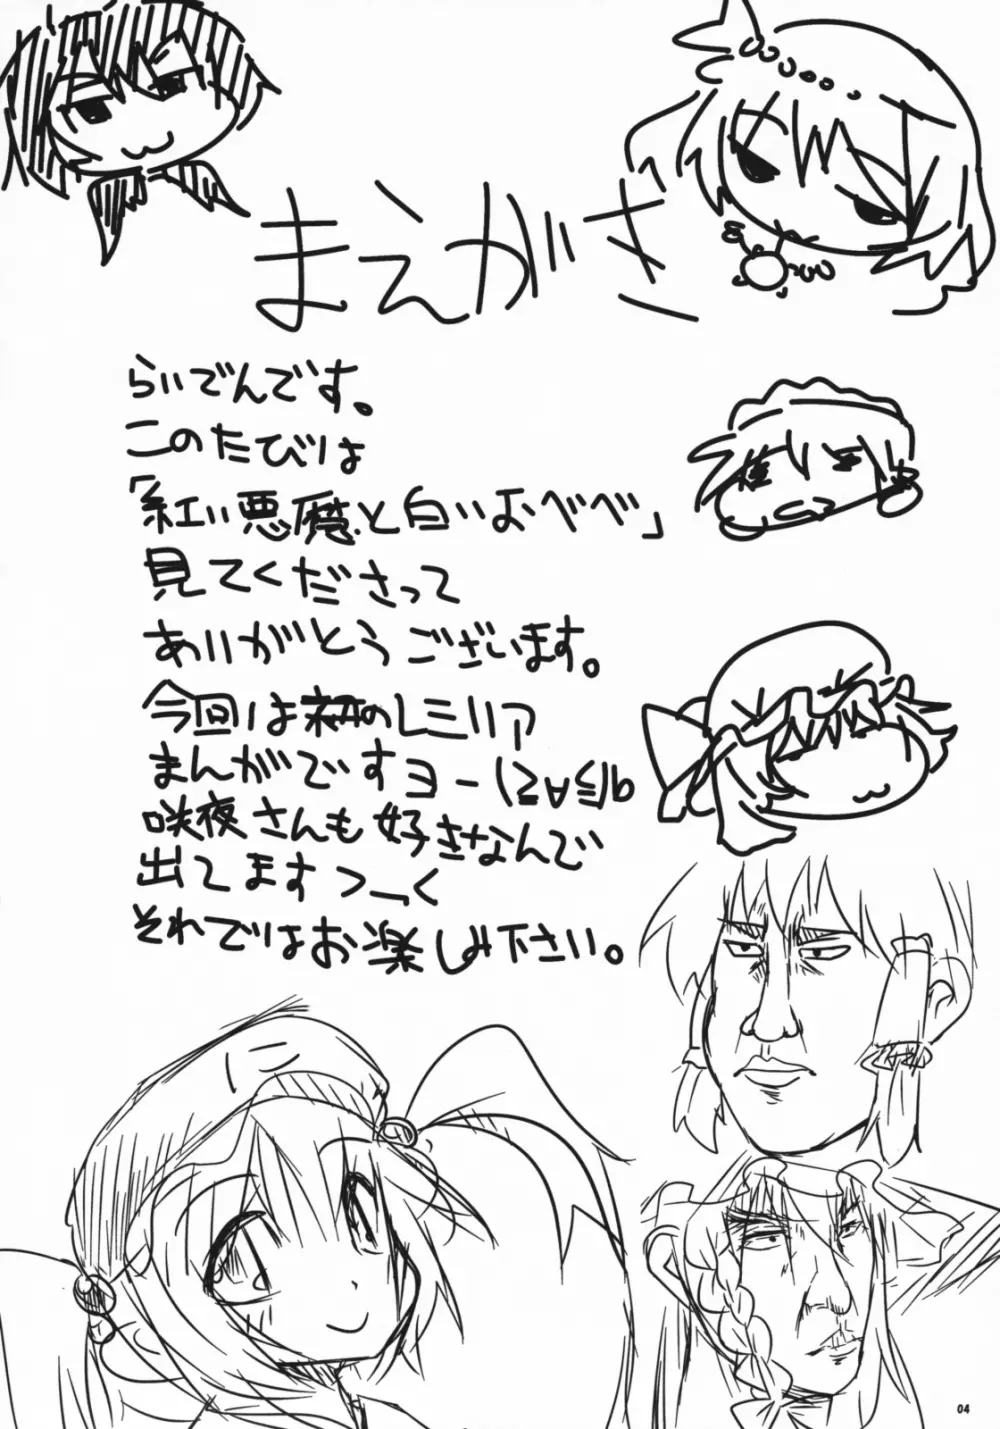 まえがき
らいでんです。
このたびは
「紅い悪魔と白いおべべ」
見てくださって
ありがとうございます。
今回は初のレミリア
まんがですヨー(≧∀≦)b
咲夜さんも好きなんで
出てますつーく
それではお楽しみ下さい。
に
04